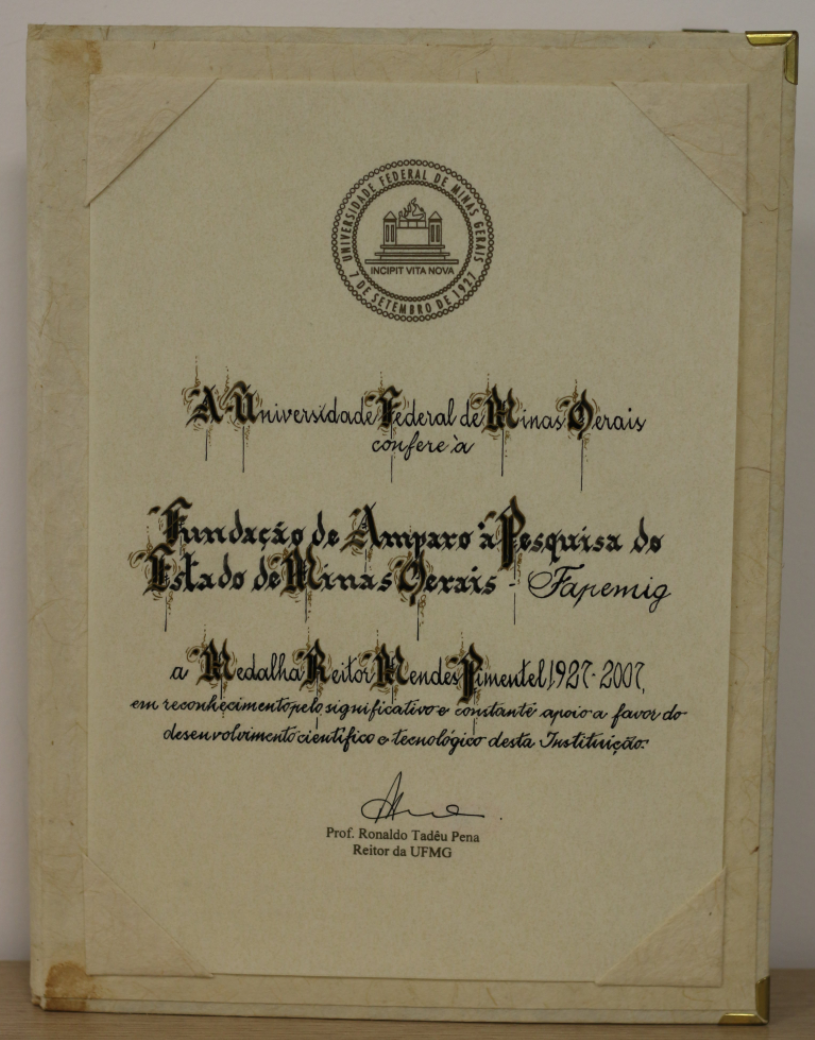 UNIVERSIDADE FEDERAL DE MINAS GERAIS
INCIPIT VITA NOVA
7 DE SETEMBRO DE 1927
A Universidade Federal de Minas Gerais
confere à
Fundação de Amparo à Pesquisa do
Estado de Minas Gerais - Fapemig
a Medalha Reitor Mendes Pimentel 1927-2007,
em reconhecimento pelo significativo e constante apoio a favor do
desenvolvimento científico e tecnológico desta Instituição.
Prof. Ronaldo Tadêu Pena
Reitor da UFMG